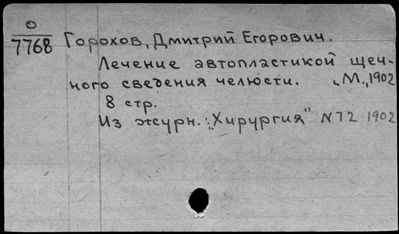 О
7768 Горохов, Дмитрий Егорович.
Лечение автопластикой щеч-
ного сведения челюсти. М., 1902
8 стр.
Из журн.: "Хирургия" N72 1902